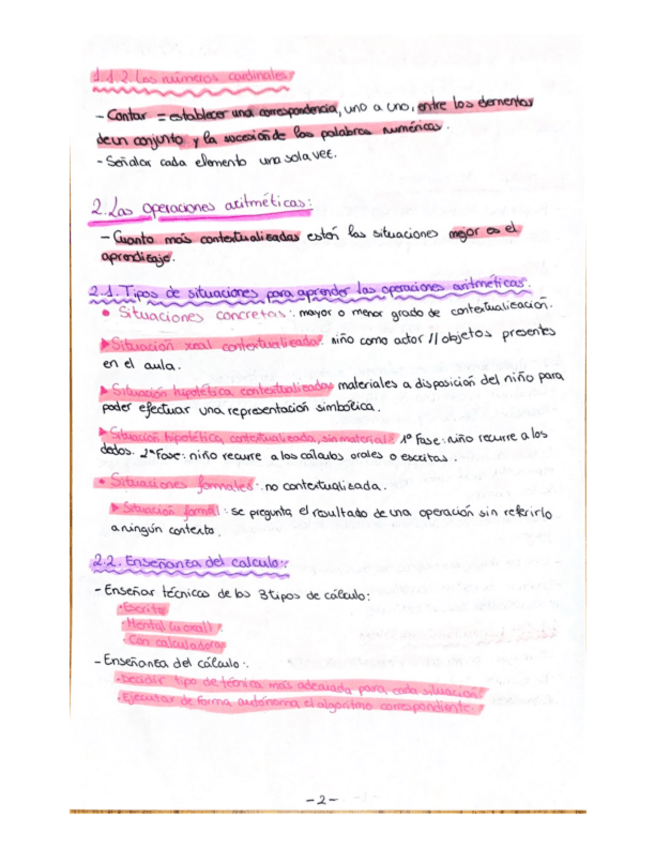 1.1.2. Los números cardinales:
- Contar = establecer una correspondencia, uno a uno, entre los elementos
de un conjunto y la sucesión de las palabras numéricas.
- Señalar cada elemento una sola vez.
2. Las operaciones aritméticas:
- Cuanto más contextualizadas están las situaciones mejor es el
aprendizaje.
2.1. Tipos de situaciones para aprender las operaciones aritméticas:
• Situaciones concretas: mayor o menor grado de contextualización.
▸ Situación real contextualizada: niño como actor // objetos presentes
en el aula.
▸ Situación hipotética contextualizada: materiales a disposición del niño para
poder efectuar una representación simbólica.
▸ Situación hipotética, contextualizada, sin material: 1º fase: niño recurre a los
dedos. 2ª Fase: niño recurre a los cálculos orales o escritos.
• Situaciones formales: no contextualizada.
▸ Situación formal: se pregunta el resultado de una operación sin referirlo
a ningún contexto.
2.2. Enseñanza del calculo:
- Enseñar técnicas de los 3 tipos de cálculo:
· Escrito
· Mental (u oral)
· Con calculadoras
- Enseñanza del cálculo:
· Decidir tipo de técnica más adecuada para cada situación.
· Ejecutar de forma autónoma el algoritmo correspondiente.
- 2 -